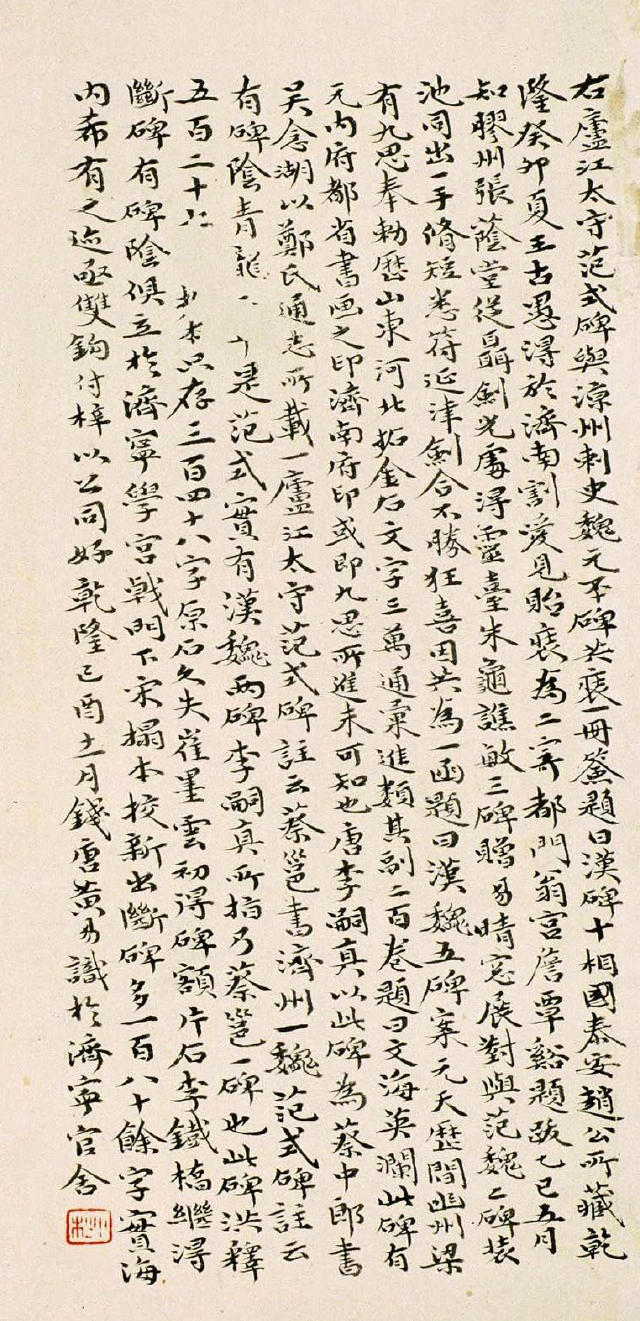 右廬江太守范式碑與涼州刺史魏元丕碑共裱一冊簽題曰漢碑十相國泰安趙公所藏乾
隆癸卯夏王古愚淂於濟南割愛見貽裱為二寄都門翁宮詹覃谿題跋乙巳五月
知膠州張蔭堂從聶劍光處淂靈臺朱龜譙敏三碑贈易晴窓展對與范魏二碑裝
池同出一手脩短悉符延津劍合不勝狂喜因共為一函題曰漢魏五碑案元天歷間幽州梁
有九思奉勅歷山東河北拓金石文字三萬通彙進類其副二百卷題曰文海英瀾此碑有
元內府都省書画之印濟南府印或即九思所進未可知也唐李嗣真以此碑為蔡中郎書
吴念湖以鄭氏通志所載一廬江太守范式碑註云蔡邕書濟州一魏范式碑註云
有碑陰青龍二 是范式實有漢魏兩碑李嗣真所指乃蔡邕一碑也此碑洪釋
五百二十 本只存三百四十八字原石久失崔墨雲初得碑額片石李鐵橋繼淂
斷碑有碑陰俱立於濟寧學宮戟門下宋搨本校新出斷碑多一百八十餘字實海
內希有之迹亟雙鈎付梓以公同好乾隆己酉十一月錢唐黃易識於濟寧官舍